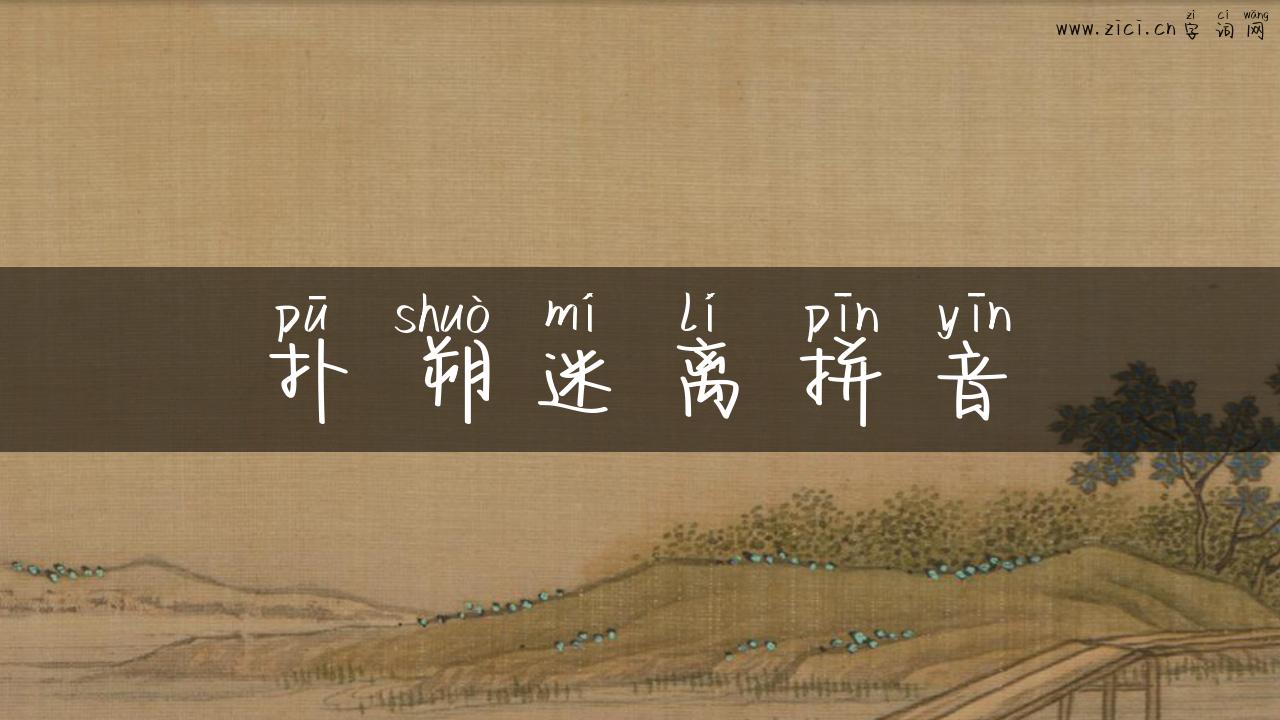 zì cí wǎng
www.zici.cn 字词网
pū shuò mí lí pīn yīn
扑朔迷离拼音